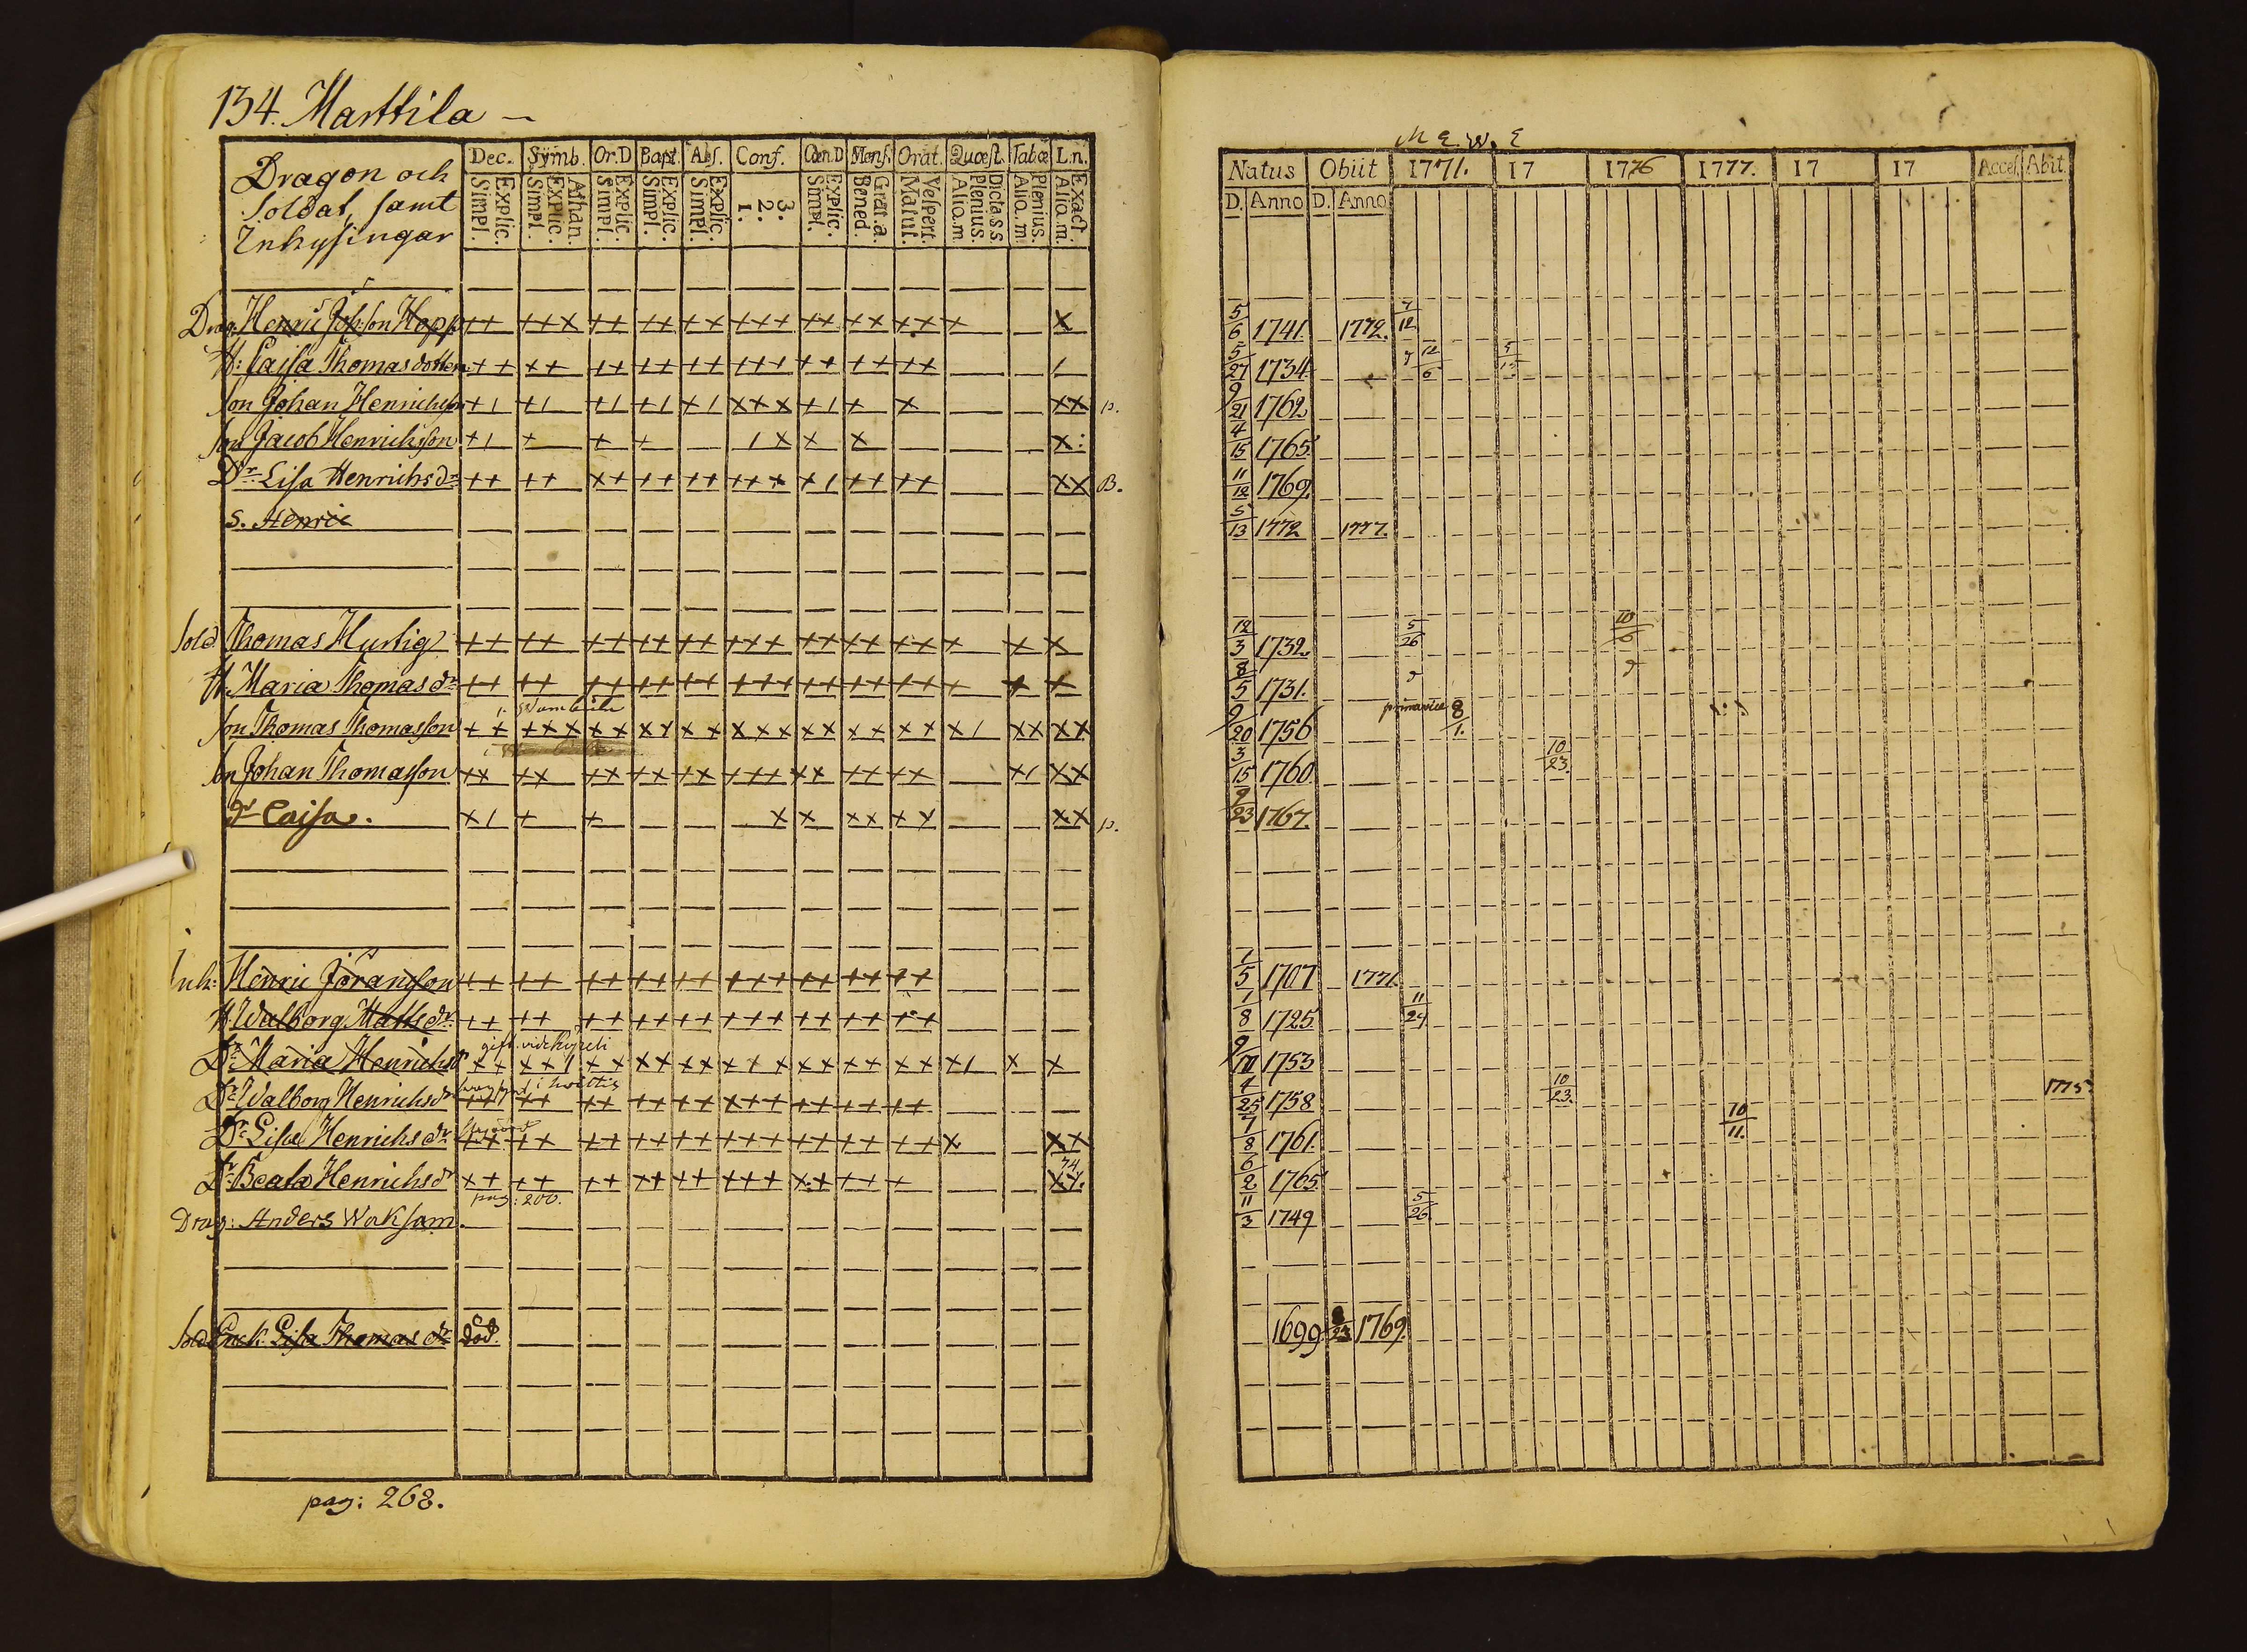 134. Marttila
Dragon och
Soldat, samt
Inhysingar
Dec. Symb. Or.D Bapt. Abs. Conf. Cœn.D Mens. Orat. Quæst. Tabæ L.n.
Simpl. Explic. Simpl. Explic. Athan. Simpl. Explic. Simpl. Explic. Simpl. Explic. 1. 2. 3. Simpl. Explic. Bened. Grat.a. Matut. Vespert. Alio.m. Plenius. Dicta s.s. Alio.m Plenius. Alio.m. Exact.
Drag. Henric Joh:son Hopp ++ +++ ++ ++ ++ +++ ++ ++ +++ + x
H: Caisa Thomasdotter ++ ++ ++ ++ ++ +++ ++ ++ ++
Son Johan Henrichson +1 +1 +1 +1 x1 xxx +1 x x xx p.
Son Jacob Henrichsson +1 + + + 1 x x x x:
Dr. Lisa Henrichsdr ++ ++ x+ ++ ++ +++ +1 ++ ++ xx B.
S. Henric
Sold Thomas Hurtig ++ ++ ++ ++ ++ +++ ++ ++ +++ x + x
H. Maria Thomasdr ++ ++ ++ ++ ++ +++ ++ ++ +++ + + +
Son Thomas Thomasson ++ +++ ++ xx xx xxx xx xx xx x1 xx xx
Son Johan Thomasson ++ ++ ++ ++ ++ +++ ++ ++ ++ x1 xx
dr Caisa. x1 + + x x xx xx xx p.
Inh: Henric Jöransson ++ ++ ++ ++ ++ +++ ++ ++ ++
H. Walborg Mattsdr. ++ ++ ++ ++ ++ +++ ++ ++ ++
gift.
Dr. Maria Henrichsdr ++ xx1 ++ xx xx xxx xx xx xx x1 x x
Dr. Walborg Henrichsdr ++ ++ ++ ++ ++ +++ ++ ++ ++
Dr. Lisa Henrichsdr ++ ++ ++ ++ ++ +++ ++ ++ +++ x. xx
74
Dr. Beata Henrichsdr ++ ++ ++ ++ ++ +++ ++ ++ + x
pag: 200.
Drag: Anders Waksam.
Sold Enck. Lisa Thomasdr död.
pag: 268.
M E. W. E
Natus Obiit 1771. 17 1776 1777. 17 17 Acces. Abit
D. Anno D. Anno
5/6 1741. 1772. 7/12
5/27 1734. 12/6
9/21 1762
4/15 1765
11/12 1769.
5/13 1772 1777.
12/3 1732. 5/26 10/6
8/5 1731.
9/20 1756 8/1.
3/15 1760 10/23.
9/23 1767.
1/5 1707 1771.
1/8 1725. 11/24
9/17 1753
4/25 1758 10/23. 1775.
7/8 1761. 10/11.
6/2 1765
11/3 1749 5/26.
1699 8/23 1769.